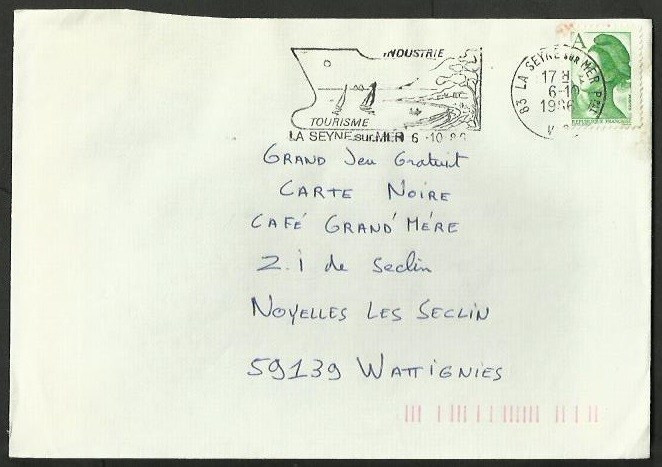 INDUSTRIE
TOURISME
LA SEYNE sur MER 6-10-86
83 LA SEYNE sur MER PPAL
17 H
6-10
1986
A
REPUBLIQUE FRANÇAISE
GRAND Jeu Gratuit
CARTE NOIRE
CAFÉ GRAND'MÉRE
Z.i de Seclin
NOYELLES LES SECLIN
59139 WATTIGNIES